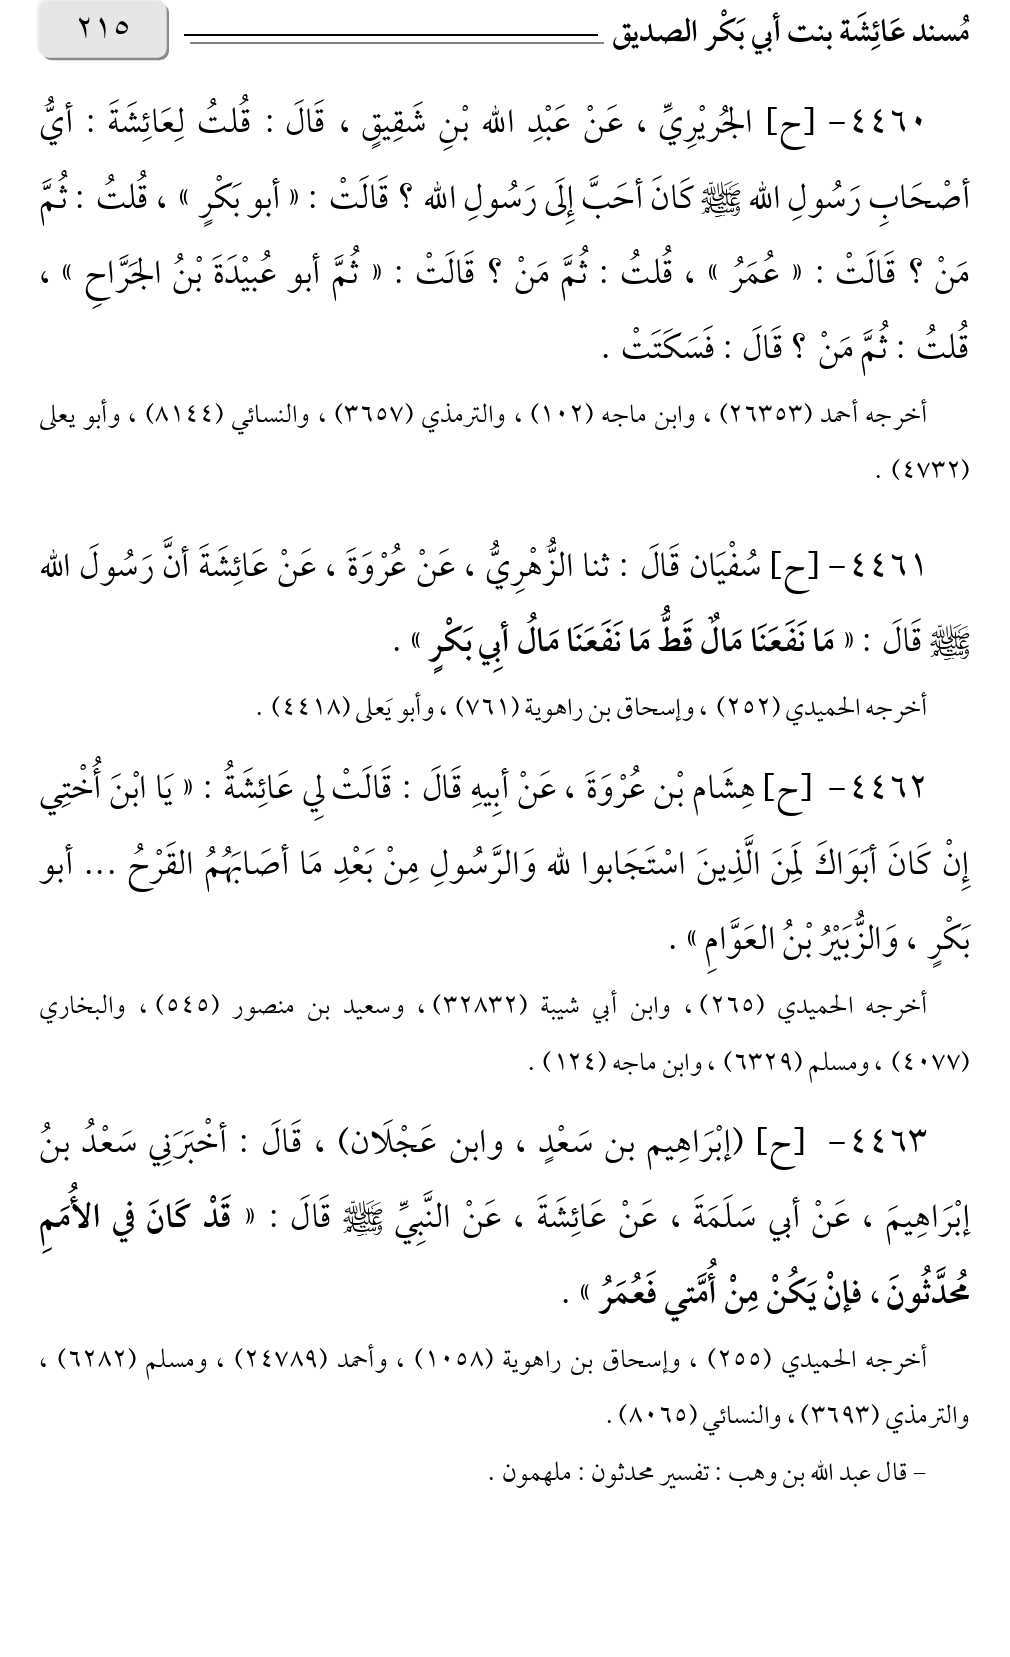 مُسند عَائِشَة بنت أبي بَكْر الصديق
٢١٥
٤٤٦٠- [ح] الجُرَيْرِيِّ ، عَنْ عَبْدِ الله بْنِ شَقِيقٍ ، قَالَ : قُلتُ لِعَائِشَةَ : أيُّ
أصْحَابِ رَسُولِ الله ﷺ كَانَ أحَبَّ إِلَى رَسُولِ الله ؟ قَالَتْ : « أبو بَكْرٍ » ، قُلتُ : ثُمَّ
مَنْ ؟ قَالَتْ : « عُمَرُ » ، قُلتُ : ثُمَّ مَنْ ؟ قَالَتْ : « ثُمَّ أبو عُبيْدَةَ بْنُ الجَرَّاحِ » ،
قُلتُ : ثُمَّ مَنْ ؟ قَالَ : فَسَكَتَتْ .
أخرجه أحمد (٢٦٣٥٣) ، وابن ماجه (١٠٢) ، والترمذي (٣٦٥٧) ، والنسائي (٨١٤٤) ، وأبو يعلى
(٤٧٣٢) .
٤٤٦١- [ح] سُفْيَان قَالَ : ثنا الزُّهْرِيُّ ، عَنْ عُرْوَةَ ، عَنْ عَائِشَةَ أنَّ رَسُولَ الله
ﷺ قَالَ : « مَا نَفَعَنَا مَالٌ قَطُّ مَا نَفَعَنَا مَالُ أبِي بَكْرٍ » .
أخرجه الحميدي (٢٥٢) ، وإسحاق بن راهوية (٧٦١) ، وأبو يَعلى (٤٤١٨) .
٤٤٦٢- [ح] هِشَام بْن عُرْوَةَ ، عَنْ أبِيهِ قَالَ : قَالَتْ لِي عَائِشَةُ : « يَا ابْنَ أُخْتِي
إِنْ كَانَ أبَوَاكَ لَمِنَ الَّذِينَ اسْتَجَابوا لله وَالرَّسُولِ مِنْ بَعْدِ مَا أصَابَهُمُ القَرْحُ ... أبو
بَكْرٍ ، وَالزُّبَيْرُ بْنُ العَوَّامِ » .
أخرجه الحميدي (٢٦٥) ، وابن أبي شيبة (٣٢٨٣٢) ، وسعيد بن منصور (٥٤٥) ، والبخاري
(٤٠٧٧) ، ومسلم (٦٣٢٩) ، وابن ماجه (١٢٤) .
٤٤٦٣- [ح] (إبْرَاهِيم بن سَعْدٍ ، وابن عَجْلَان) ، قَالَ : أخْبَرَنِي سَعْدُ بنُ
إبْرَاهِيمَ ، عَنْ أبي سَلَمَةَ ، عَنْ عَائِشَةَ ، عَنْ النَّبِيِّ ﷺ قَالَ : « قَدْ كَانَ في الأُمَمِ
مُحدَّثُونَ ، فإنْ يَكُنْ مِنْ أُمَّتي فَعُمَرُ » .
أخرجه الحميدي (٢٥٥) ، وإسحاق بن راهوية (١٠٥٨) ، وأحمد (٢٤٧٨٩) ، ومسلم (٦٢٨٢) ،
والترمذي (٣٦٩٣) ، والنسائي (٨٠٦٥) .
– قال عبد الله بن وهب : تفسير محدثون : ملهمون .